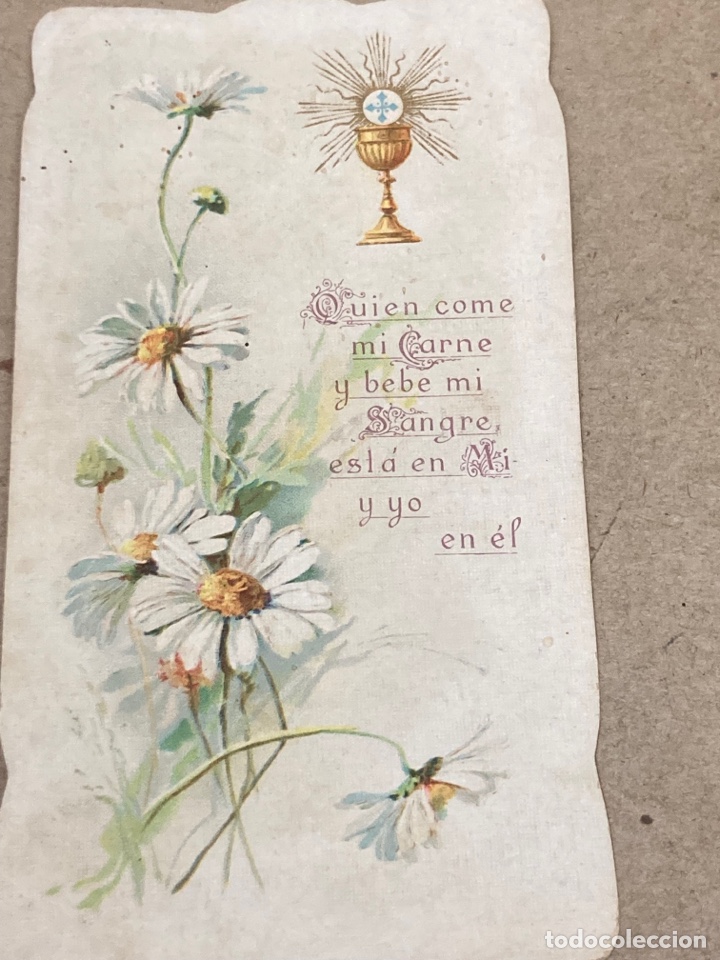 Quien come
mi Carne
y bebe mi
Sangre,
está en Mi
y yo
en él
todocoleccion